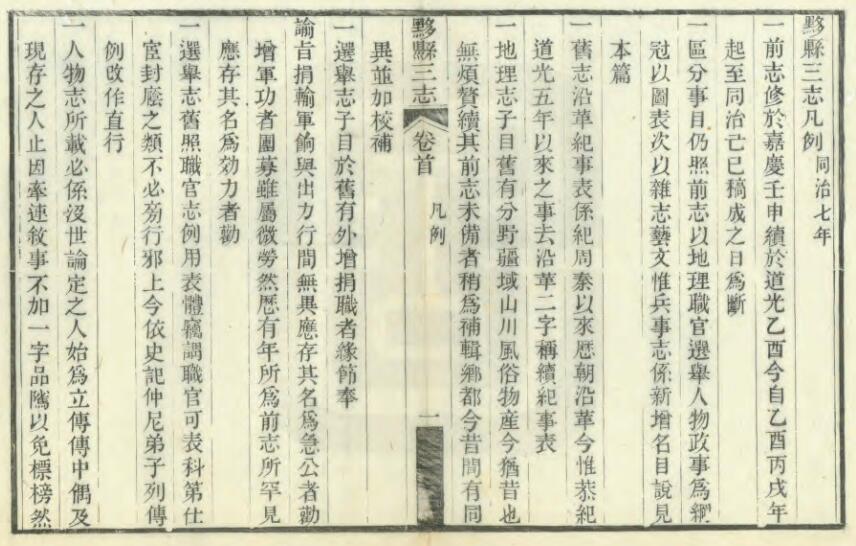 黟縣三志凡例 同治七年
一前志修於嘉慶壬申續於道光乙酉今自乙酉丙戌年
起至同治己巳稿成之日爲斷
一區分事目仍照前志以地理職官選舉人物政事爲綱
冠以圖表次以雜志藝文惟兵事志係新增名目說見
本篇
一舊志沿革紀事表係紀周秦以來歷朝沿革今惟恭紀
道光五年以來之事去沿革二字稱續紀事表
一地理志子目舊有分野疆域山川風俗物産今猶昔也
無煩贅續其前志未備者稍爲補輯鄉都今昔間有同
黟縣三志 卷首 凡例 一
異並加校補
一選舉志子目於舊有外增捐職者緣節奉
諭旨捐輸軍餉與出力行間無異應存其名爲急公者勸
增軍功者團募雖屬微勞然歷有年所爲前志所罕見
應存其名爲効力者勸
一選舉志舊照職官志例用表體竊謂職官可表科第仕
宦封廕之類不必旁行邪上今依史記仲尼弟子列傳
例改作直行
一人物志所載必係沒世論定之人始爲立傳傳中偶及
現存之人止因牽連敘事不加一字品隲以免標榜然